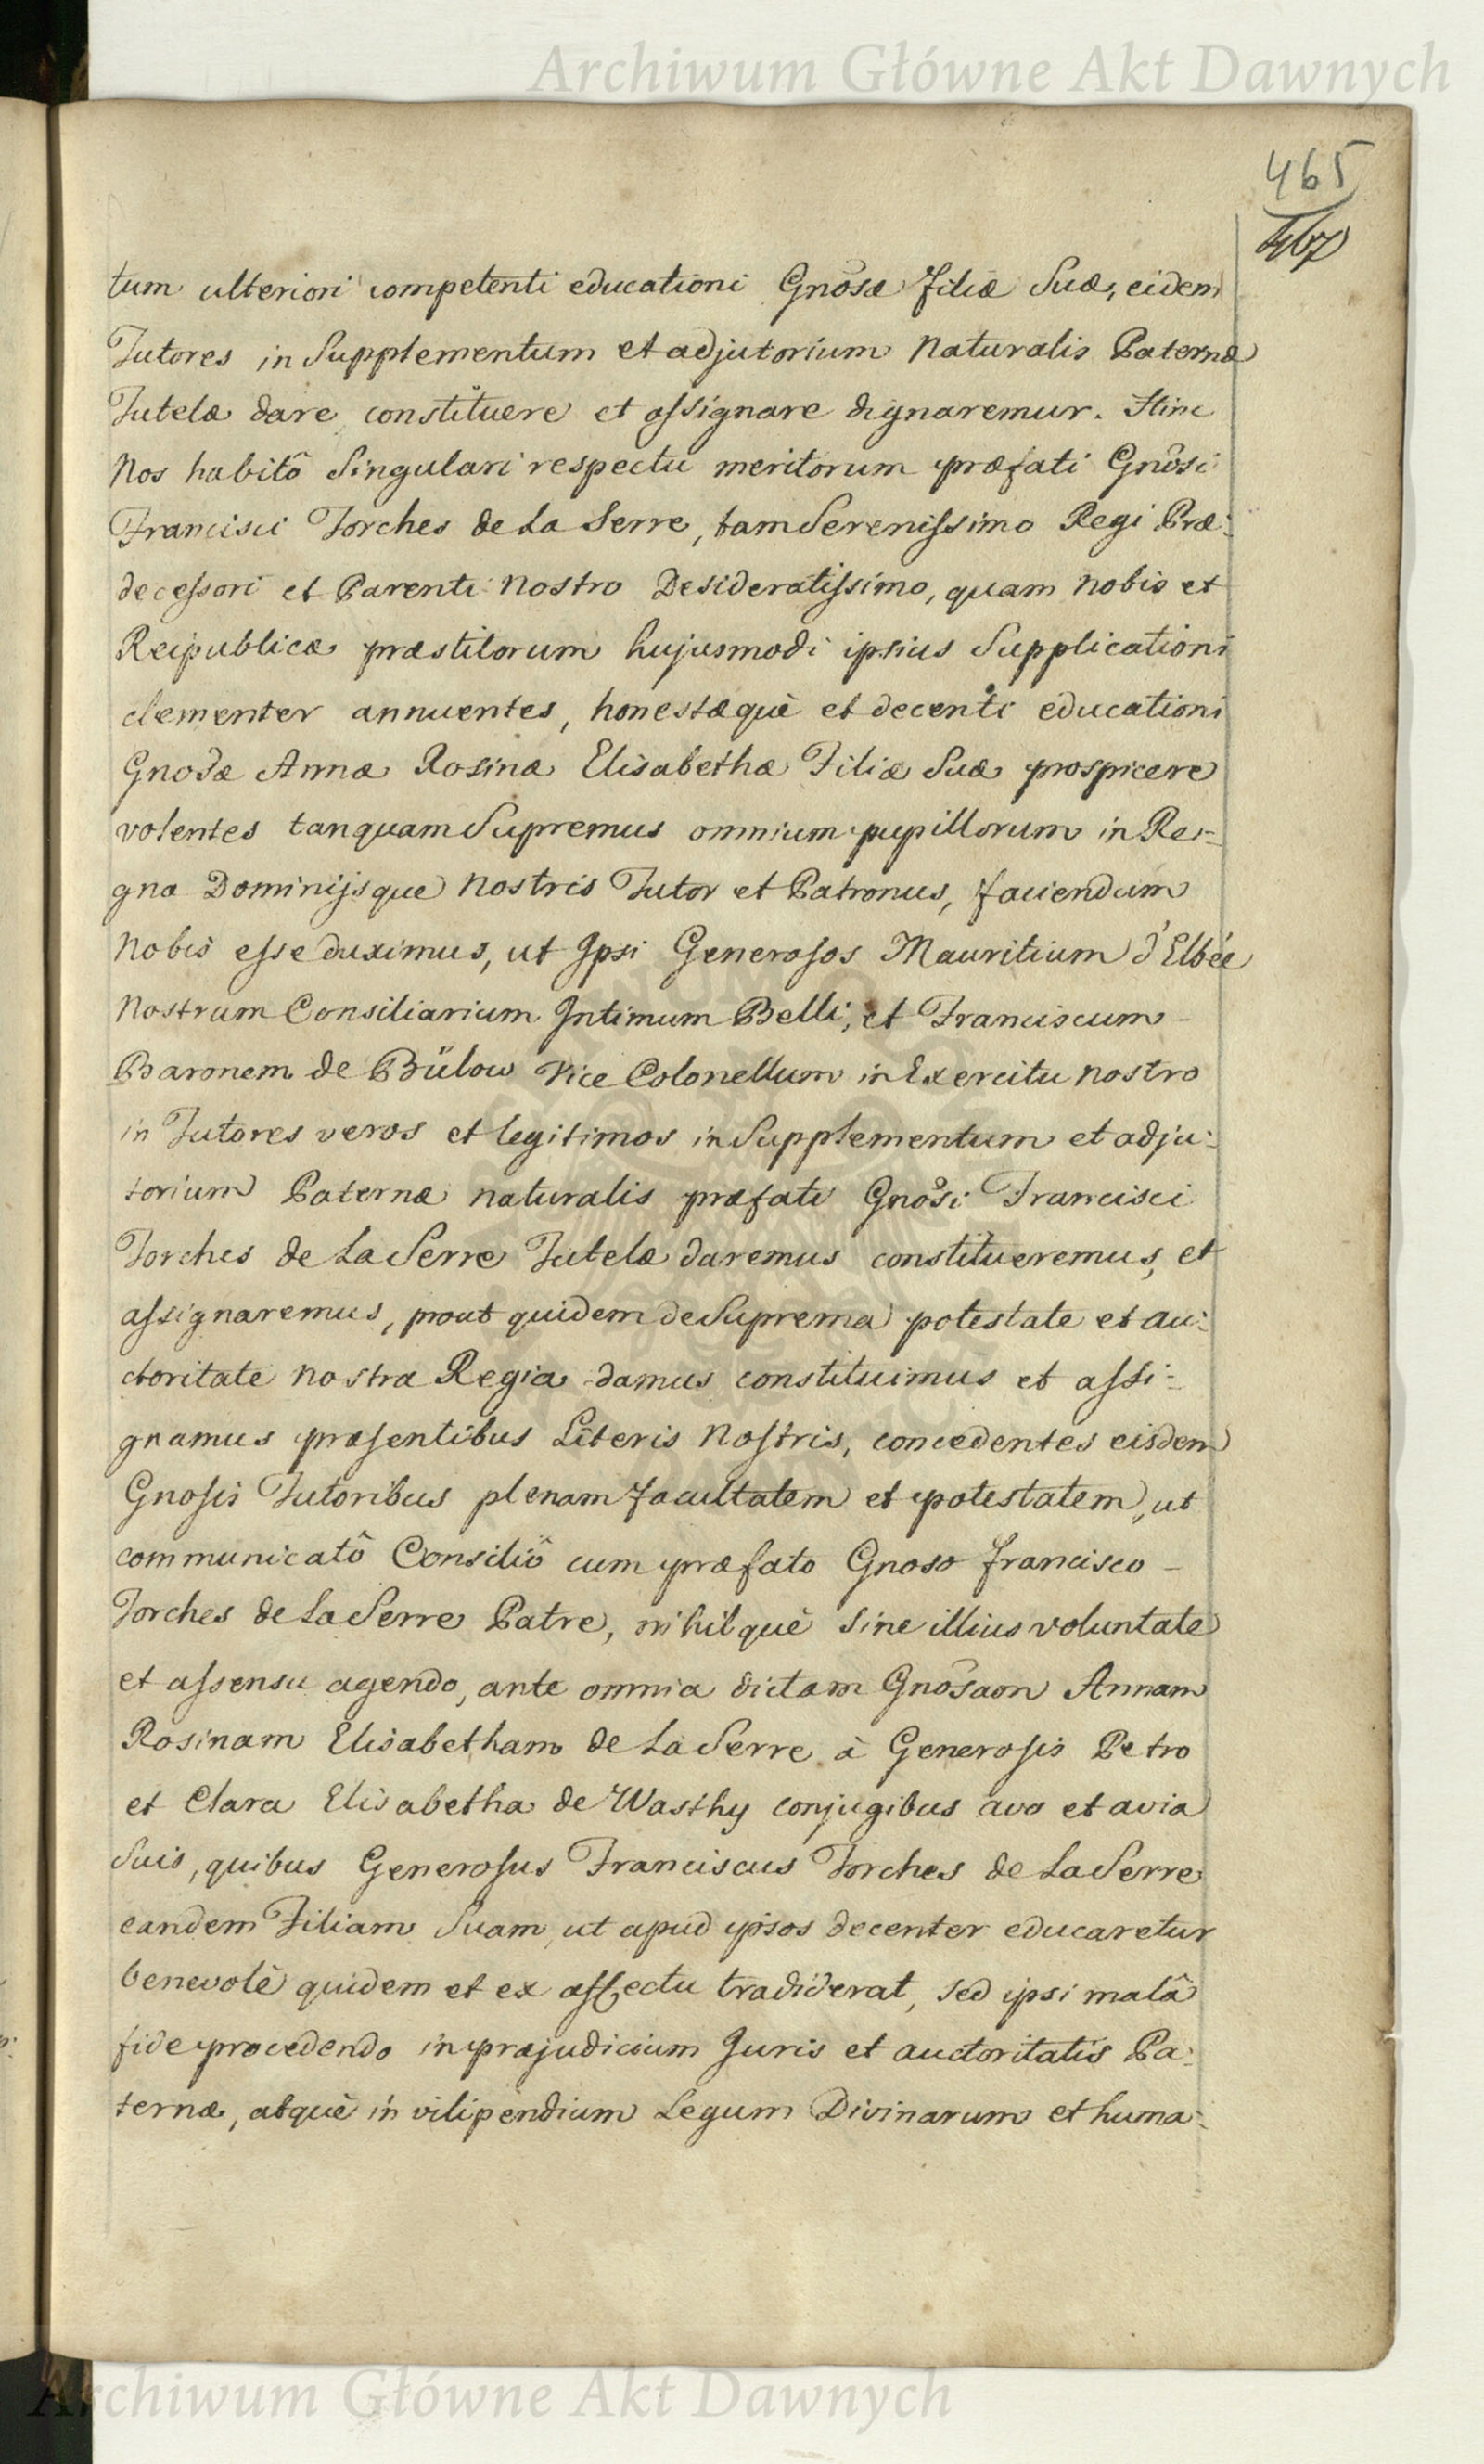 Archiwum Główne Akt Dawnych
465
467
tum ulteriori competenti educationi Gnõsæ Filiæ Suæ, eidem
Tutores in Supplementum et adjutorium Naturalis Paternæ
Tutelæ dare constituere et assignare dignaremur. Hinc
Nos habitô Singulari respectu meritorum præfati Gnõsi
Francisci Torches de La Serre, tam Serenissimo Regi Præ:
decessori et Parenti Nostro Desideratissimo, quam Nobis et
Reipublicæ præstitorum hujusmodi ipsius Supplicationi
clementer annuentes, honestæquè et decenti educationi
Gnosæ Annæ Rosinæ Elisabethæ Filiæ Suæ prospicere
volentes tanquam Supremus omnium pupillorum in Re-
gno Dominijsque Nostris Tutor et Patronus, faciendum
Nobis esse duximus, ut Ipsi Generosos Mauritium d'Elbée
Nostrum Consiliarium Intimum Belli, et Franciscum -
Baronem de Bülow Vice Colonellum in Exercitu Nostro
in Tutores veros et legitimos in Supplementum et adju:
torium Paternæ naturalis præfati Gnõsi Francisci
Torches de La Serre Tutelæ daremus constitueremus, et
assignaremus, prout quidem de Suprema potestate et au:
ctoritate Nostra Regia damus constituimus et assi:
gnamus præsentibus Literis Nostris, concedentes eisdem
Gnosis Tutoribus plenam facultatem et potestatem, ut
communicatô Consiliô cum præfato Gnoso Francisco -
Torches de La Serre Patre, nihilquè Sine illius voluntate
et assensu agendo, ante omnia dictam Gnõsam Annam
Rosinam Elisabetham de La Serre à Generosis Petro
et Clara Elisabetha de Wasthy conjugibus avo et avia
Suis, quibus Generosus Franciscus Torches de La Serre
eandem Filiam Suam, ut apud ipsos decenter educaretur
benevolè quidem et ex affectu tradiderat, sed ipsi malâ
fide procedendo in præjudicium Juris et auctoritatis Pa:
ternæ, atquè in vilipendium Legum Divinarum et huma:
Archiwum Główne Akt Dawnych